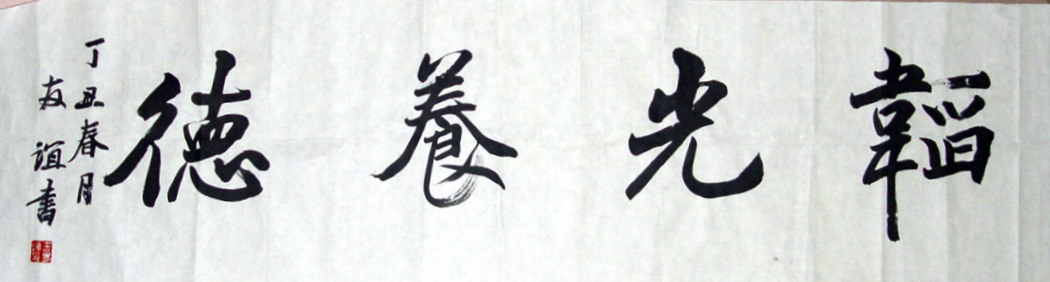 韜光養德
丁丑春月
友誼書